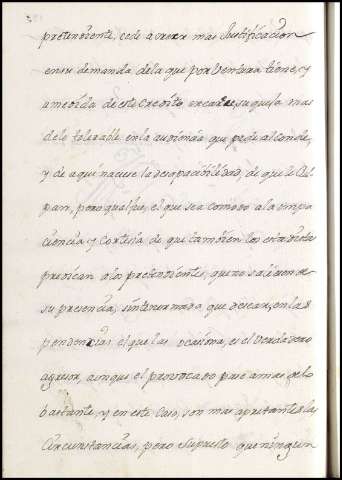 pretendiente, cede a creer mas Justificacion
en su demanda de la que por ventura tiene, y
a medida de este Credito crece su quexa mas
delo tolerable en la audiencia que pide al Conde,
y de aqui nace la desapacibilidad, de que le Cul
pan, pero qual fue, el que sea comodo a la impa
ciencia y Cortesia de que tambien los estadistas
predican a los pretendientes, que no saliesen de
su presencia, sin tener nada que desear, en las
pendencias el que las ocasiona, es el verdadero
agresor, aunque el provocado pase a mas de lo
bastante, y en este Caso, son mas apretantes las
Circunstancias, pero supuesto que ningun